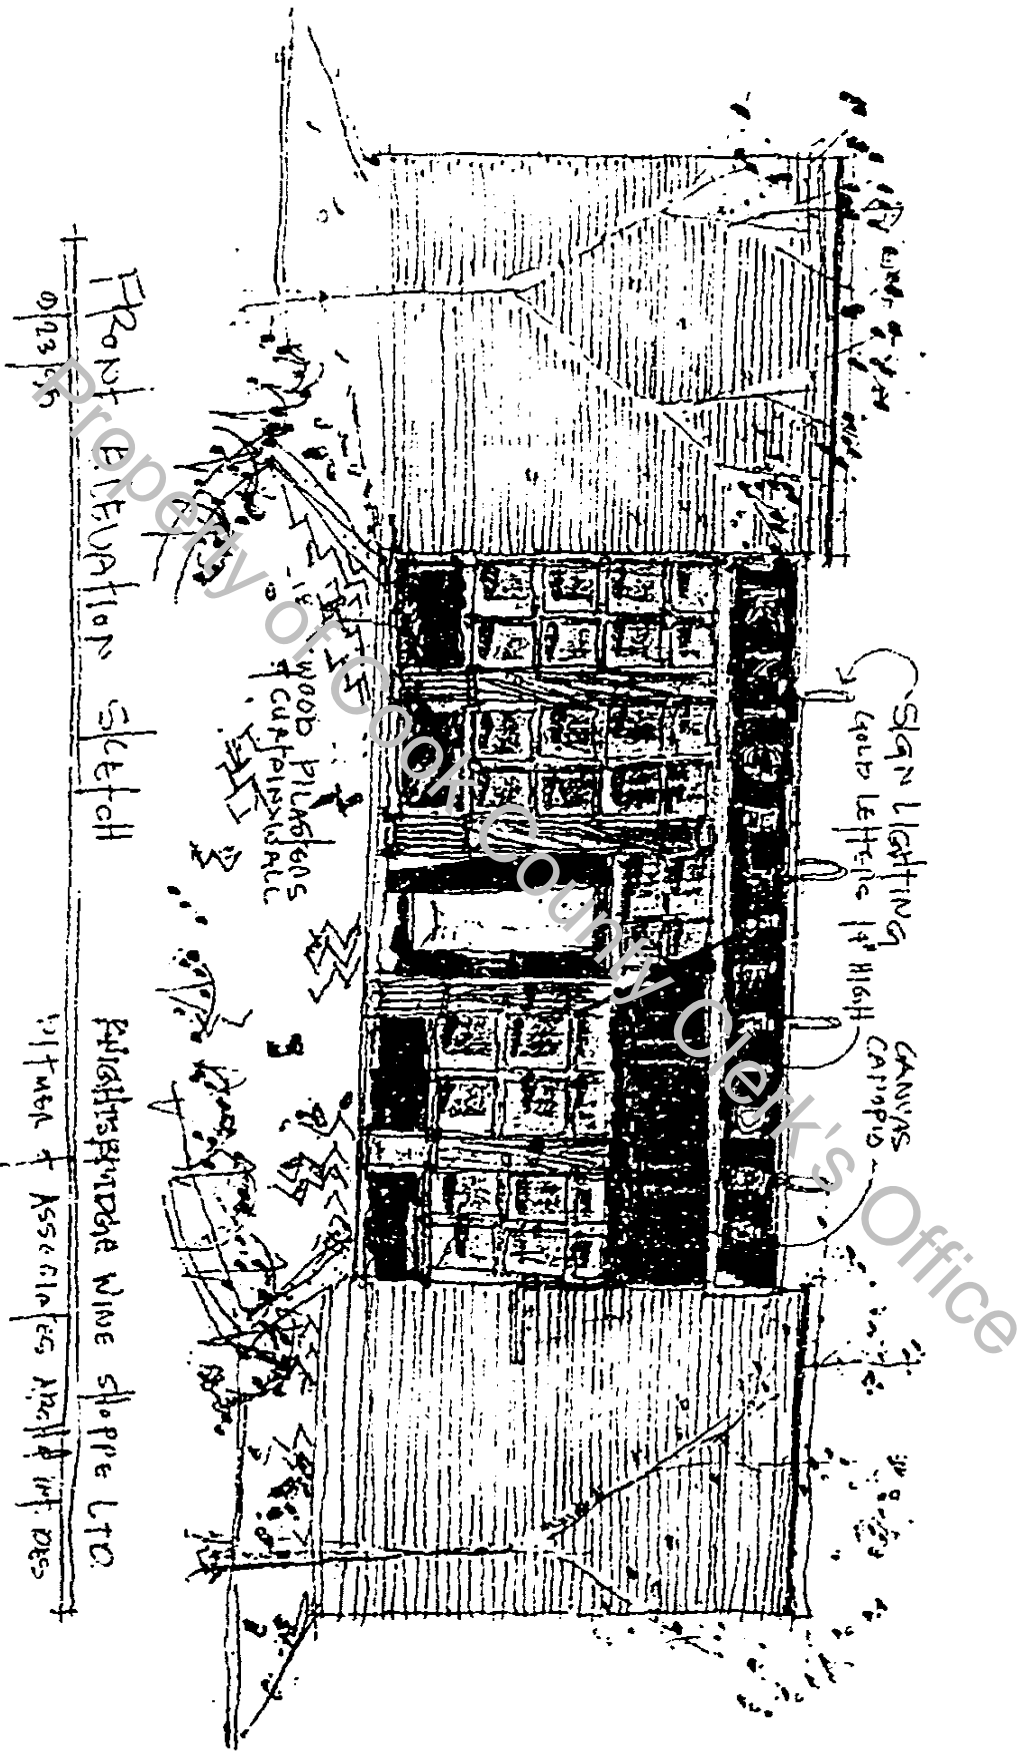 SIGN LIGHTING
GOLD LETTERS 14" HIGH
CANVAS
CANOPIES
WOOD PILASTERS
+ CURTAIN WALL
FRONT ELEVATION SKETCH
KNIGHTSBRIDGE WINE SHOPPE LTD.
WITMER + ASSOCIATES ARCH + INT. DES
Property of Cook County Clerk's Office